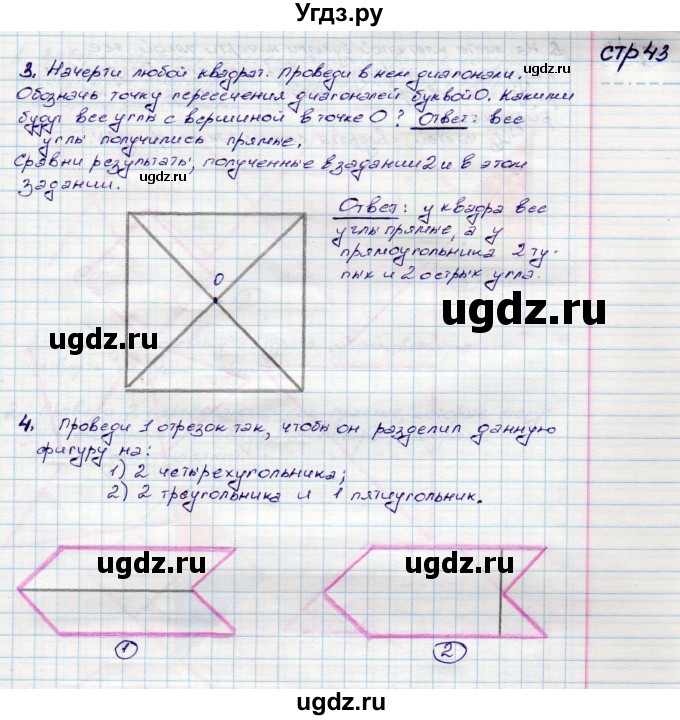 Угдз.ру
стр 43
3. Начерти любой квадрат. Проведи в нем диагонали.
Обозначь точку пересечения диагоналей буквой О. Какими
будут все углы с вершиной в точке О? Ответ: все
углы получились прямые.
Сравни результаты, полученные в задании 2 и в этом
задании.
ugdz.ru
Ответ: у квадра все
углы прямые, а у
прямоугольника 2 ту-
пых и 2 острых угла.
О
ugdz.ru
ugdz.ru
4. Проведи 1 отрезок так, чтобы он разделил данную
фигуру на:
1) 2 четырехугольника;
2) 2 треугольника и 1 пятиугольник.
ugdz.ru
ugdz.ru
1
2
ugdz.ru